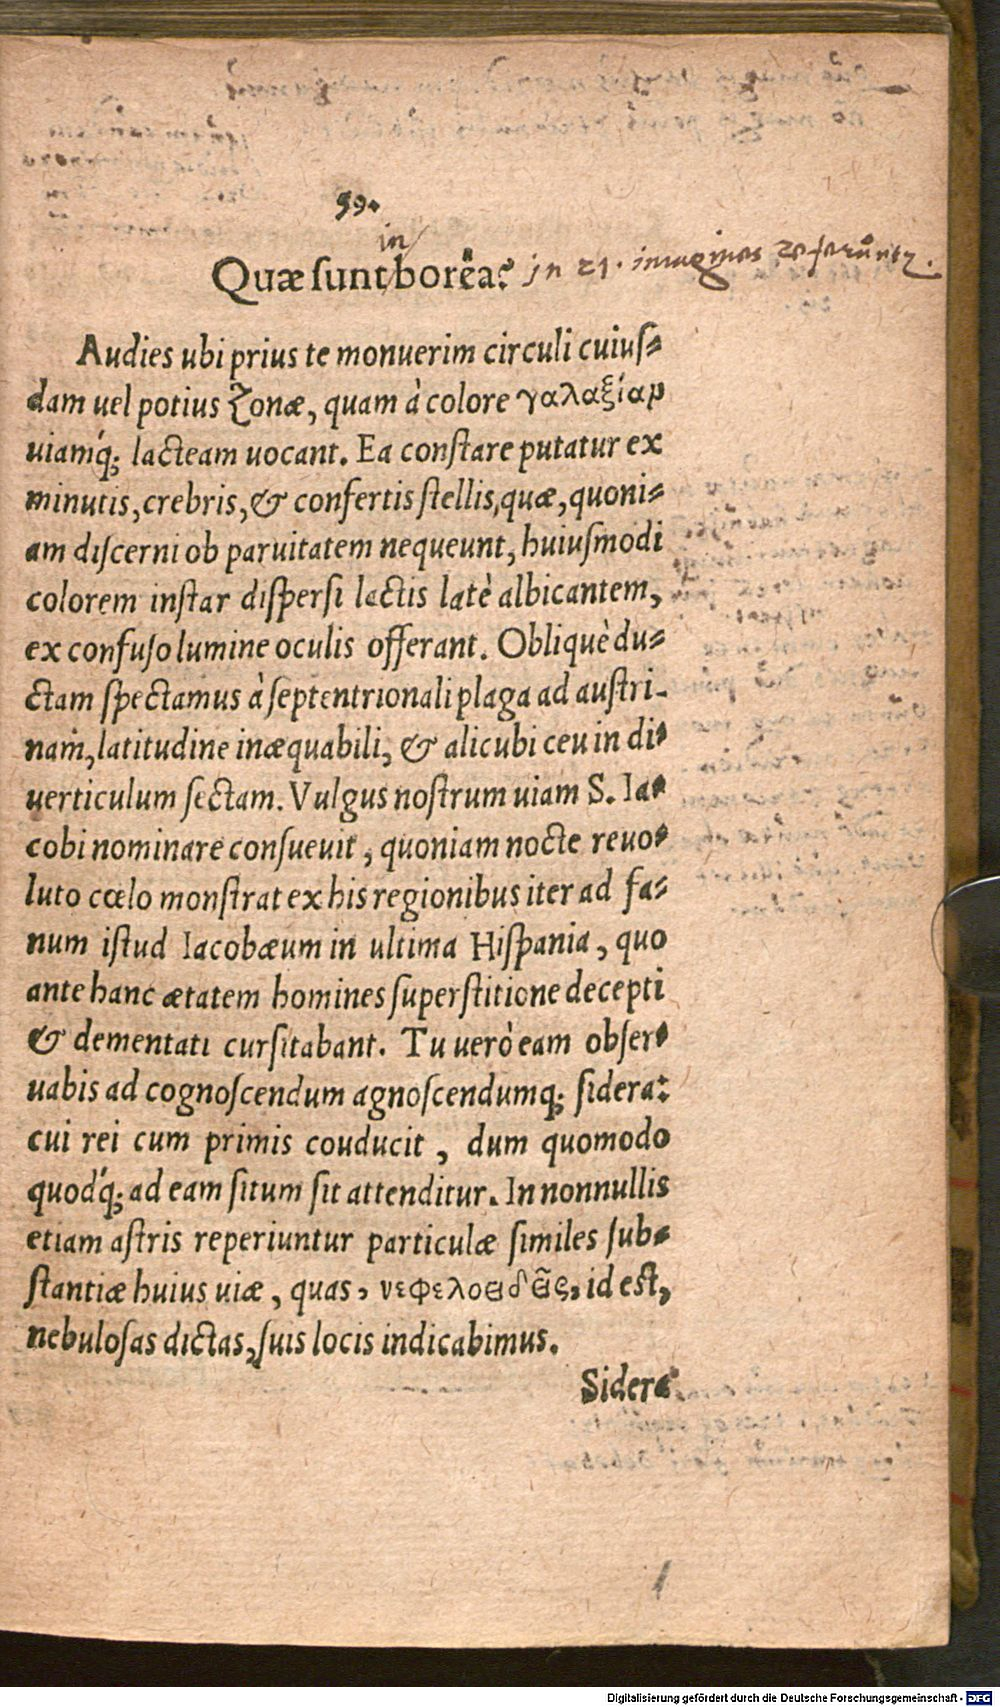 59.
in
Quæ sunt boreâ? in 21. imagines referūntr.
Audies ubi prius te monuerim circuli cuius-
dam uel potius Zonæ, quam à colore γαλαξίαν
uiamq́; lacteam uocant. Ea constare putatur ex
minutis, crebris, & confertis stellis, quæ, quoni-
am discerni ob paruitatem nequeunt, huiusmodi
colorem instar dispersi lactis latè albicantem,
ex confuso lumine oculis offerant. Obliquè du-
ctam spectamus à septentrionali plaga ad austri-
nam, latitudine inæquabili, & alicubi ceu in di-
uerticulum sectam. Vulgus nostrum uiam S. Ia-
cobi nominare consueuit, quoniam nocte reuo-
luto cœlo monstrat ex his regionibus iter ad fa-
num istud Iacobæum in ultima Hispania, quo
ante hanc ætatem homines superstitione decepti
& dementati cursitabant. Tu uerò eam obser-
uabis ad cognoscendum agnoscendumq; sidera:
cui rei cum primis couducit, dum quomodo
quodq́; ad eam situm sit attenditur. In nonnullis
etiam astris reperiuntur particulæ similes sub-
stantiæ huius uiæ, quas, νεφελοειδεῖς, id est,
nebulosas dictas, suis locis indicabimus.
Sidera
Digitalisierung gefördert durch die Deutsche Forschungsgemeinschaft - DFG